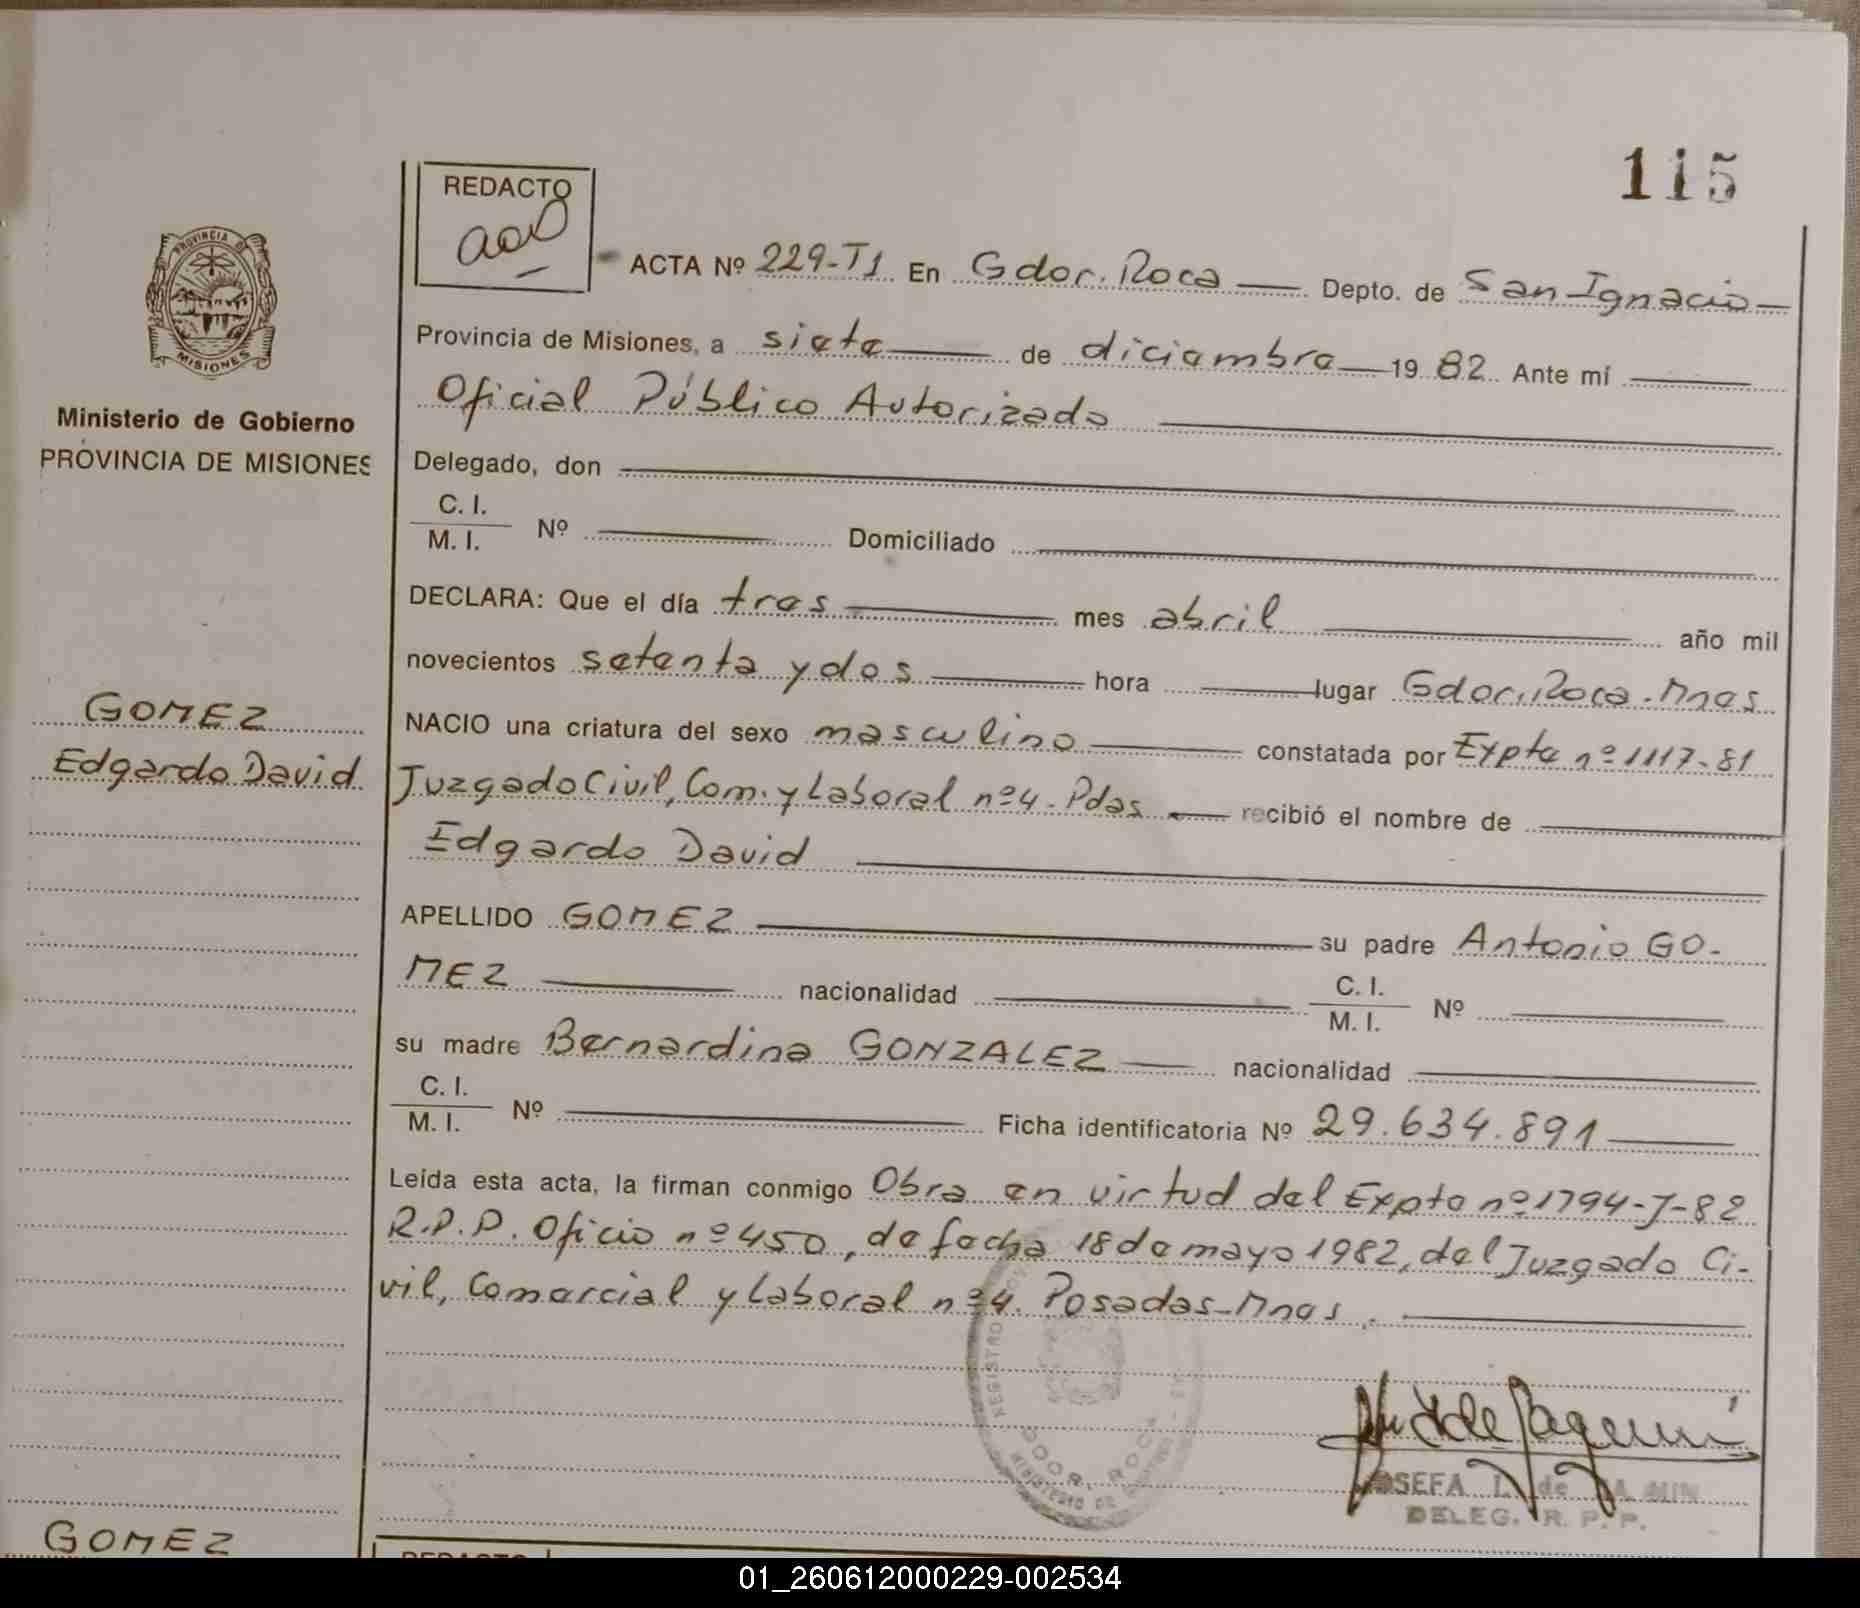 115
REDACTO
PROVINCIA DE
MISIONES
ACTA Nº 229-T1 En Gdor. Roca Depto. de San Ignacio
Provincia de Misiones, a siete de diciembre 1982 Ante mí
Oficial Público Autorizado
Ministerio de Gobierno
PROVINCIA DE MISIONES
Delegado, don
C. I.
M. I. Nº Domiciliado
DECLARA: Que el día tres mes abril año mil
novecientos setenta y dos hora lugar Gdor. Roca - Mnes
GOMEZ
Edgardo David
NACIO una criatura del sexo masculino constatada por Expte nº 1117-81
Juzgado Civil, Com. y Laboral nº 4 - Pdas recibió el nombre de
Edgardo David
APELLIDO GOMEZ su padre Antonio GO-
MEZ nacionalidad C. I. M. I. Nº
su madre Bernardina GONZALEZ nacionalidad
C. I.
M. I. Nº Ficha identificatoria Nº 29.634.891
Leída esta acta, la firman conmigo Obra en virtud del Expte nº 1794-J-82
R.P.P. Oficio nº 450, de fecha 18 de mayo 1982, del Juzgado Ci-
vil, Comercial y Laboral nº 4. Posadas - Mnes.
REGISTRO
GDOR. ROCA
MINISTERIO DE
JOSEFA I. de
DELEG. R. P. P.
GOMEZ
REDACTO
01_260612000229-002534